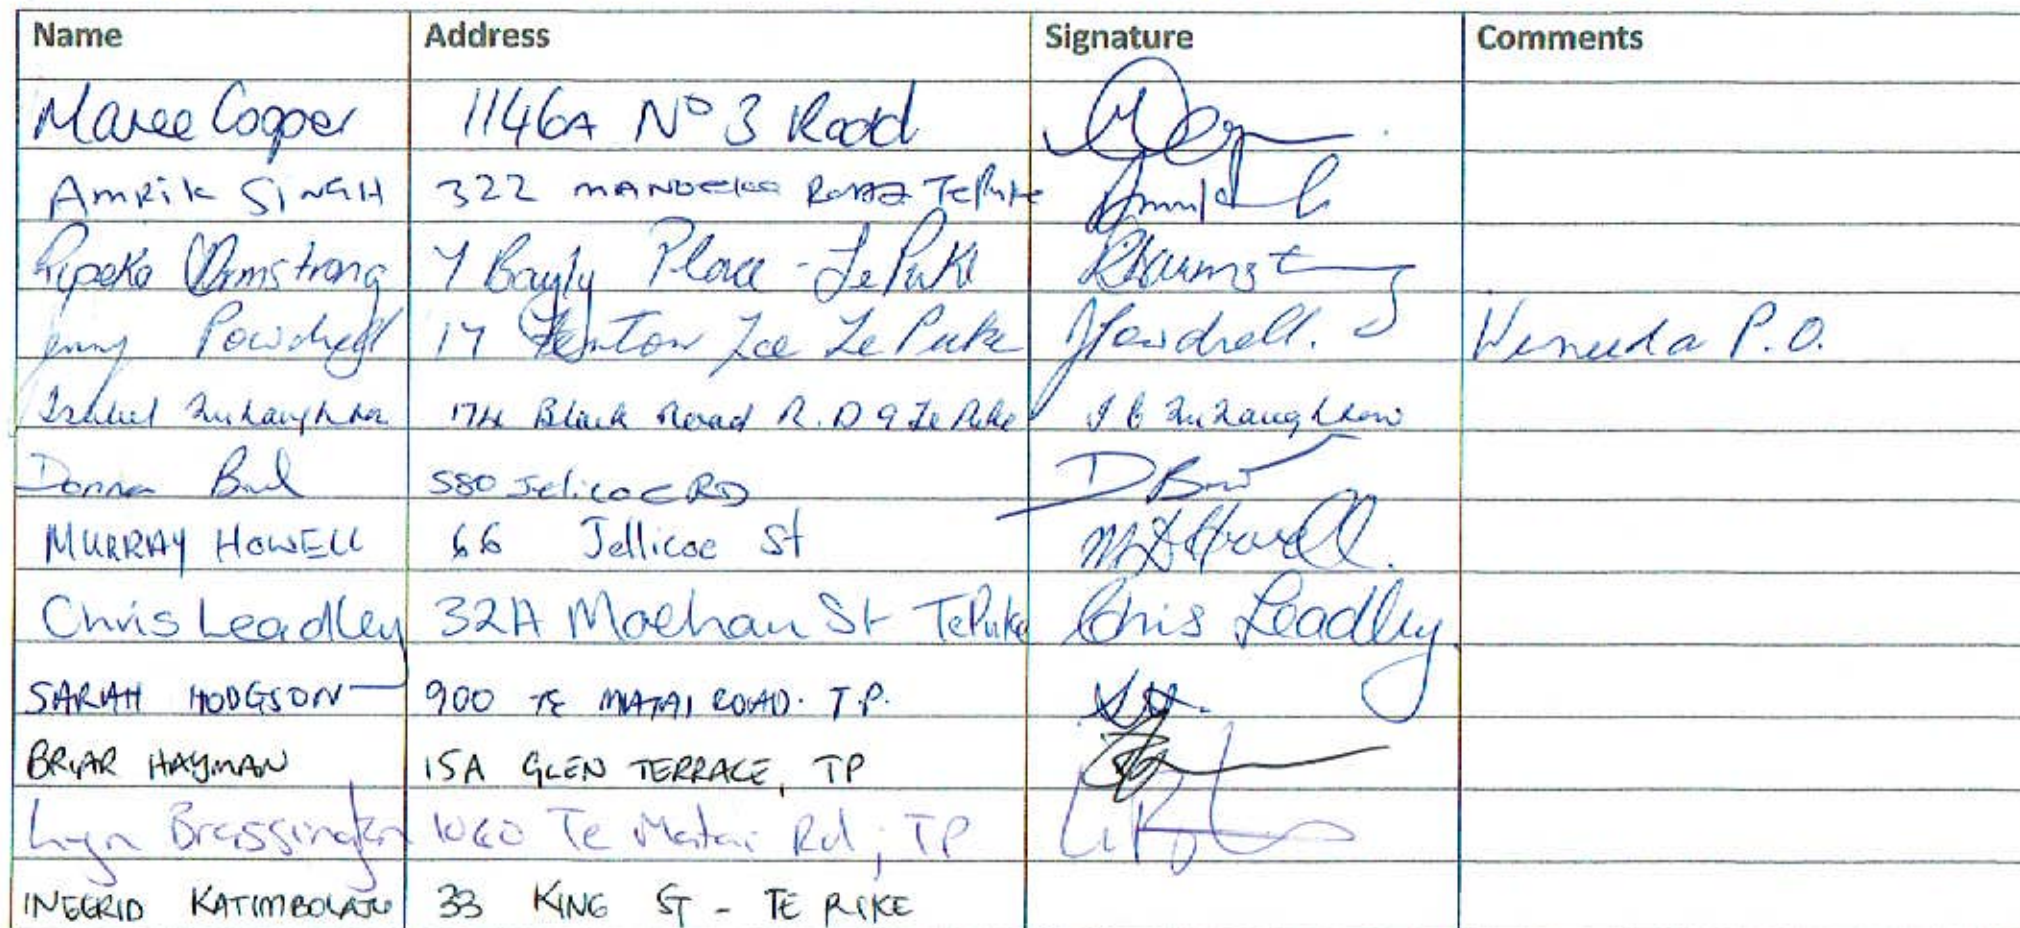 Name Address Signature Comments
Maree Cooper 1146A Nº 3 Road
AMRIK SINGH 322 Road Te Puke
Ripeka Armstrong 7 Bayly Place - Te Puke
Jenny Powdrell 17 Fenton Tce Te Puke JPowdrell.  P.O.
Isabel McNaughton 174 Black Road R.D 9 Te Puke McNaughton
Donna 580 Jelicoe RD
MURRAY HOWELL 66 Jellicoe St Howell
Chris Leadley 32A Moehau St Te Puke Chris Leadley
SARAH HODGSON 900 TE MATAI ROAD. T.P.
BRIAR HAYMAN 15A GLEN TERRACE, TP
Lyn Brassington 1060 Te Matai Rd; TP
INGRID 33 KING ST - TE PUKE